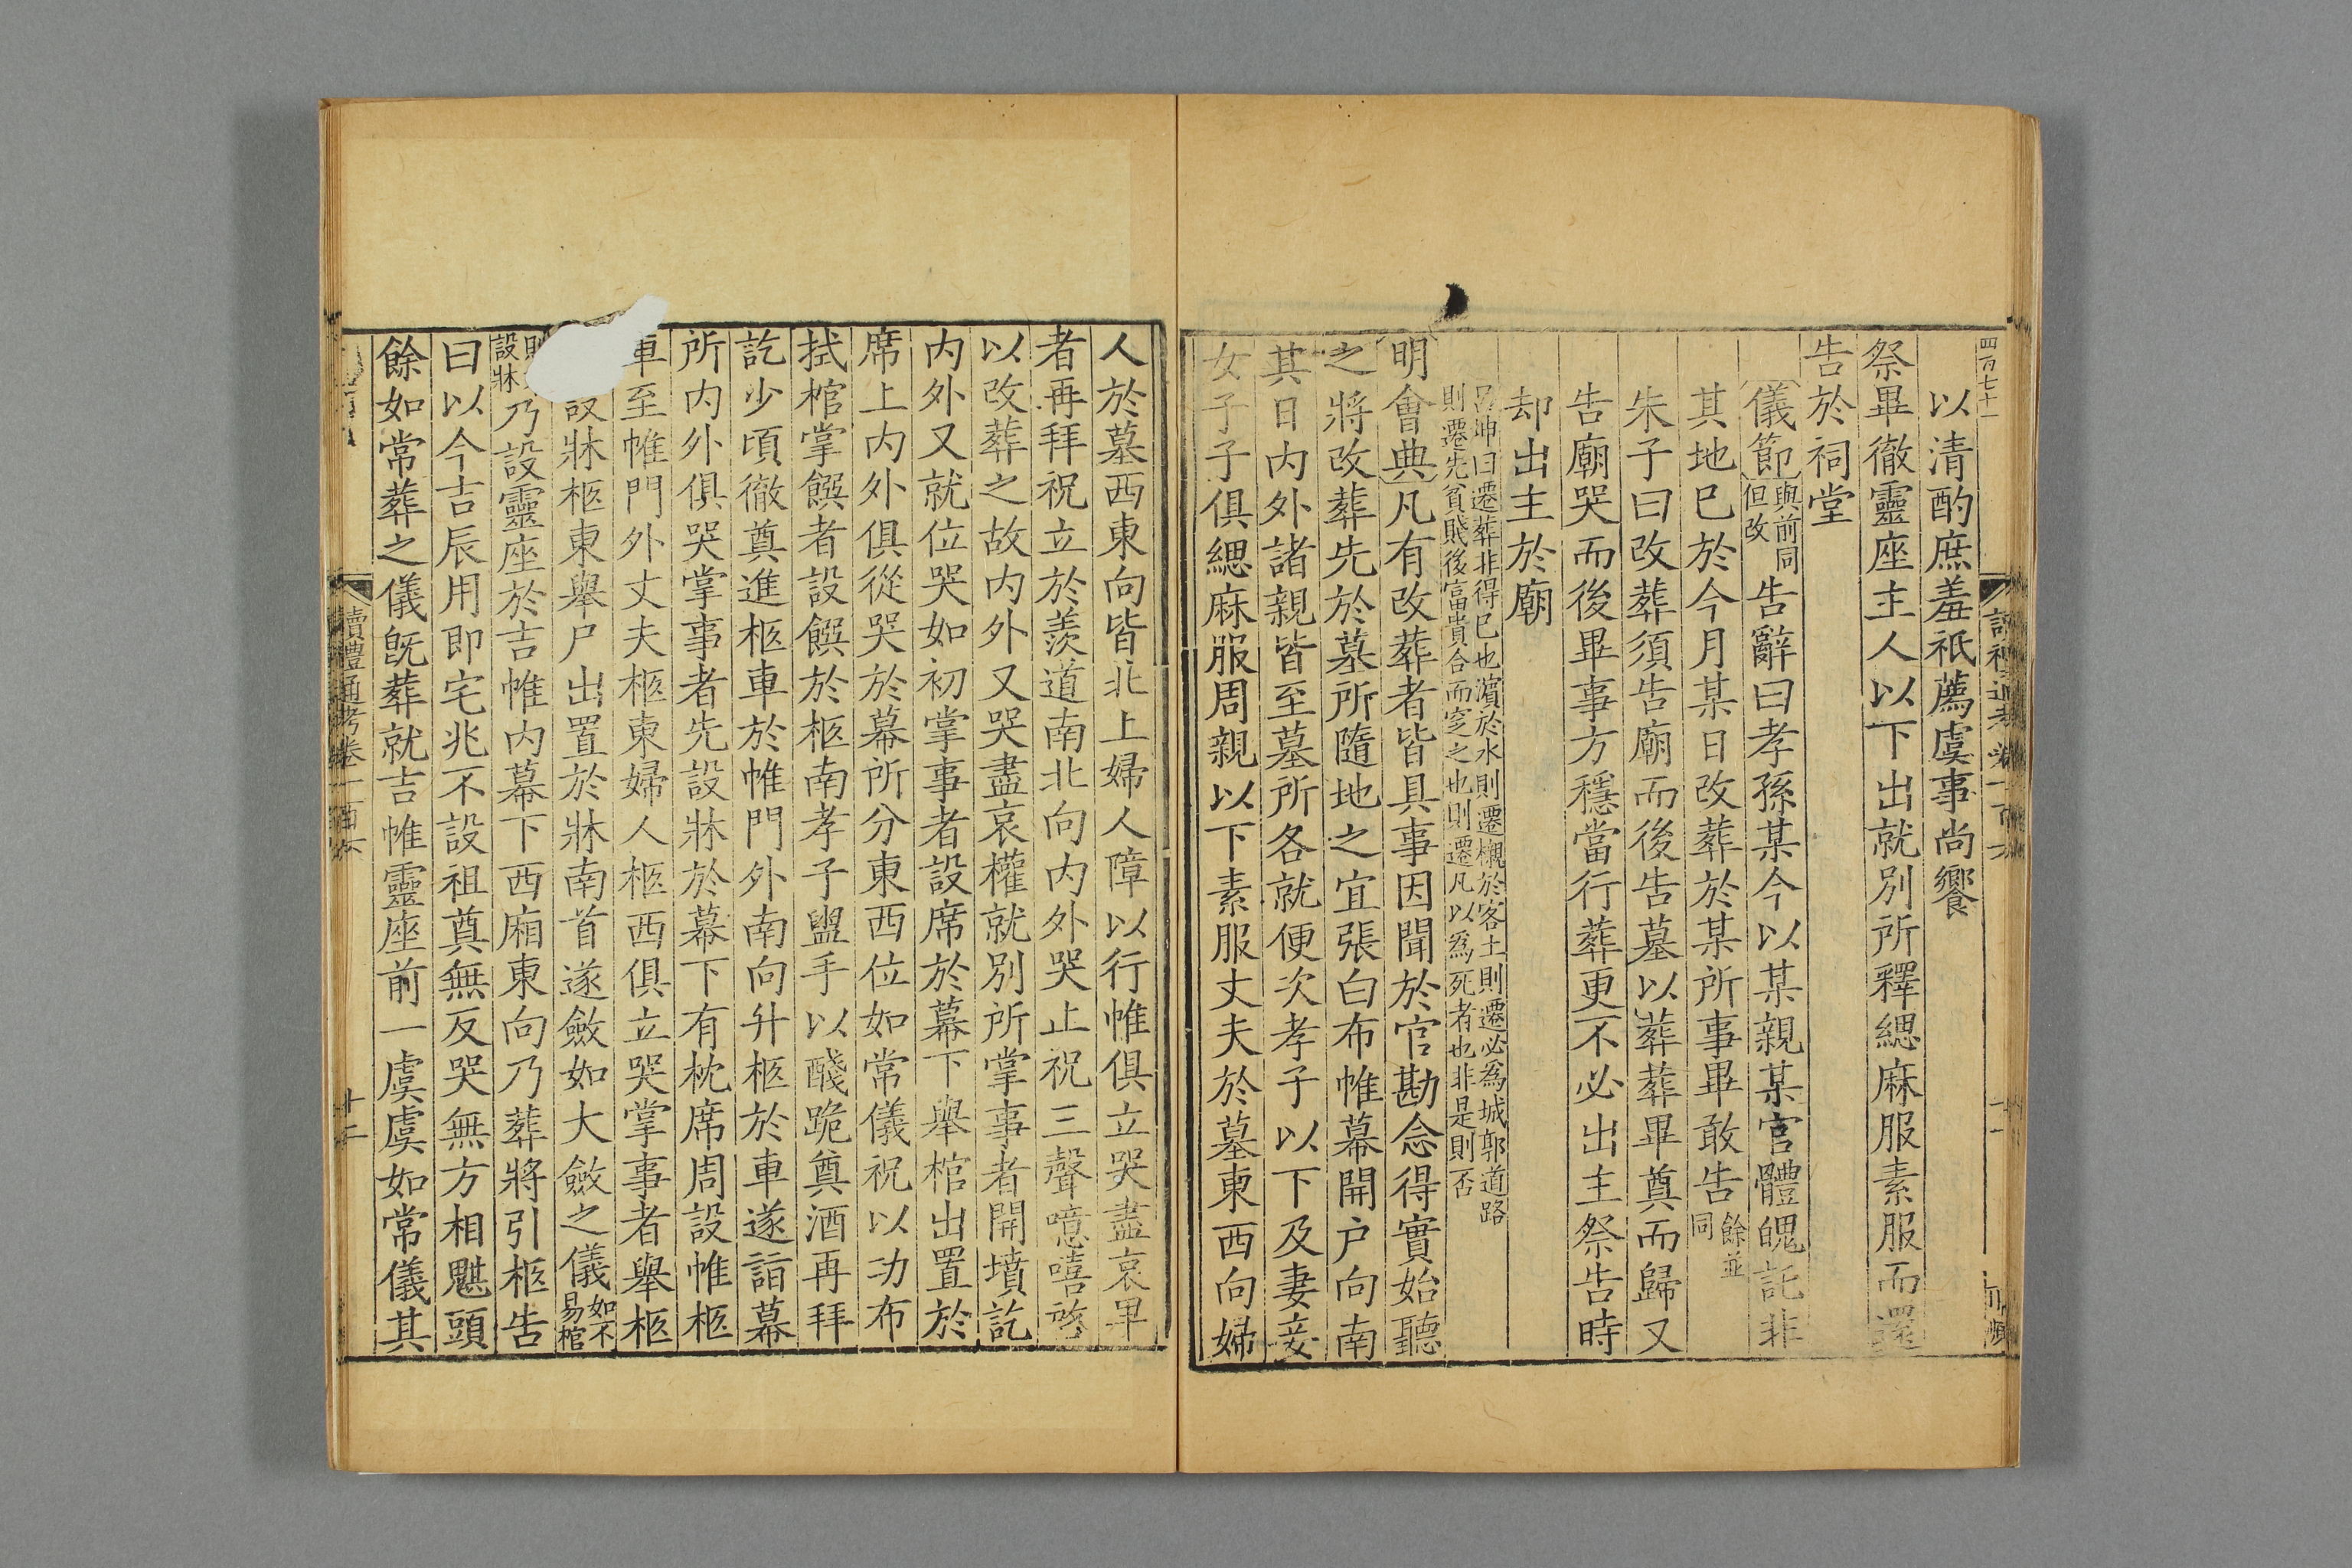 四百七十一
以清酌庶羞祇薦虞事尚饗
祭畢徹靈座主人以下出就別所釋緦麻服素服而還
告於祠堂
儀節與前同但改告辭曰孝孫某今以某親某官體魄託非
其地巳於今月某日改葬於某所事畢敢告餘並同
朱子曰改葬須告廟而後告墓以葬葬畢奠而歸又
告廟哭而後畢事方穩當行葬更不必出主祭告時
却出主於廟
呂坤曰遷葬非得巳也濵於水則遷櫬於客土則遷必爲城郭道路
則遷先貧賤後富貴合而窆之也則遷凡以爲死者也非是則否
明會典凡有改葬者皆具事因聞於官勘念得實始聽
之將改葬先於墓所隨地之宜張白布帷幕開户向南
其日内外諸親皆至墓所各就便次孝子以下及妻妾
女子子俱緦麻服周親以下素服丈夫於墓東西向婦
人於墓西東向皆北上婦人障以行帷俱立哭盡哀畢
者再拜祝立於羨道南北向内外哭止祝三聲噫嘻啓
以改葬之故内外又哭盡哀權就別所掌事者開墳訖
内外又就位哭如初掌事者設席於幕下舉棺出置於
席上内外俱從哭於幕所分東西位如常儀祝以功布
拭棺掌饌者設饌於柩南孝子盥手以醆跪奠酒再拜
訖少頃徹奠進柩車於帷門外南向升柩於車遂詣幕
所内外俱哭掌事者先設牀於幕下有枕席周設帷柩
車至帷門外丈夫柩東婦人柩西俱立哭掌事者舉柩
設牀柩東舉尸出置於牀南首遂斂如大斂之儀如不易棺
則設牀乃設靈座於吉帷内幕下西廂東向乃葬將引柩告
曰以今吉辰用即宅兆不設祖奠無反哭無方相魌頭
餘如常葬之儀旣葬就吉帷靈座前一虞虞如常儀其
讀禮通考卷一百六
十二